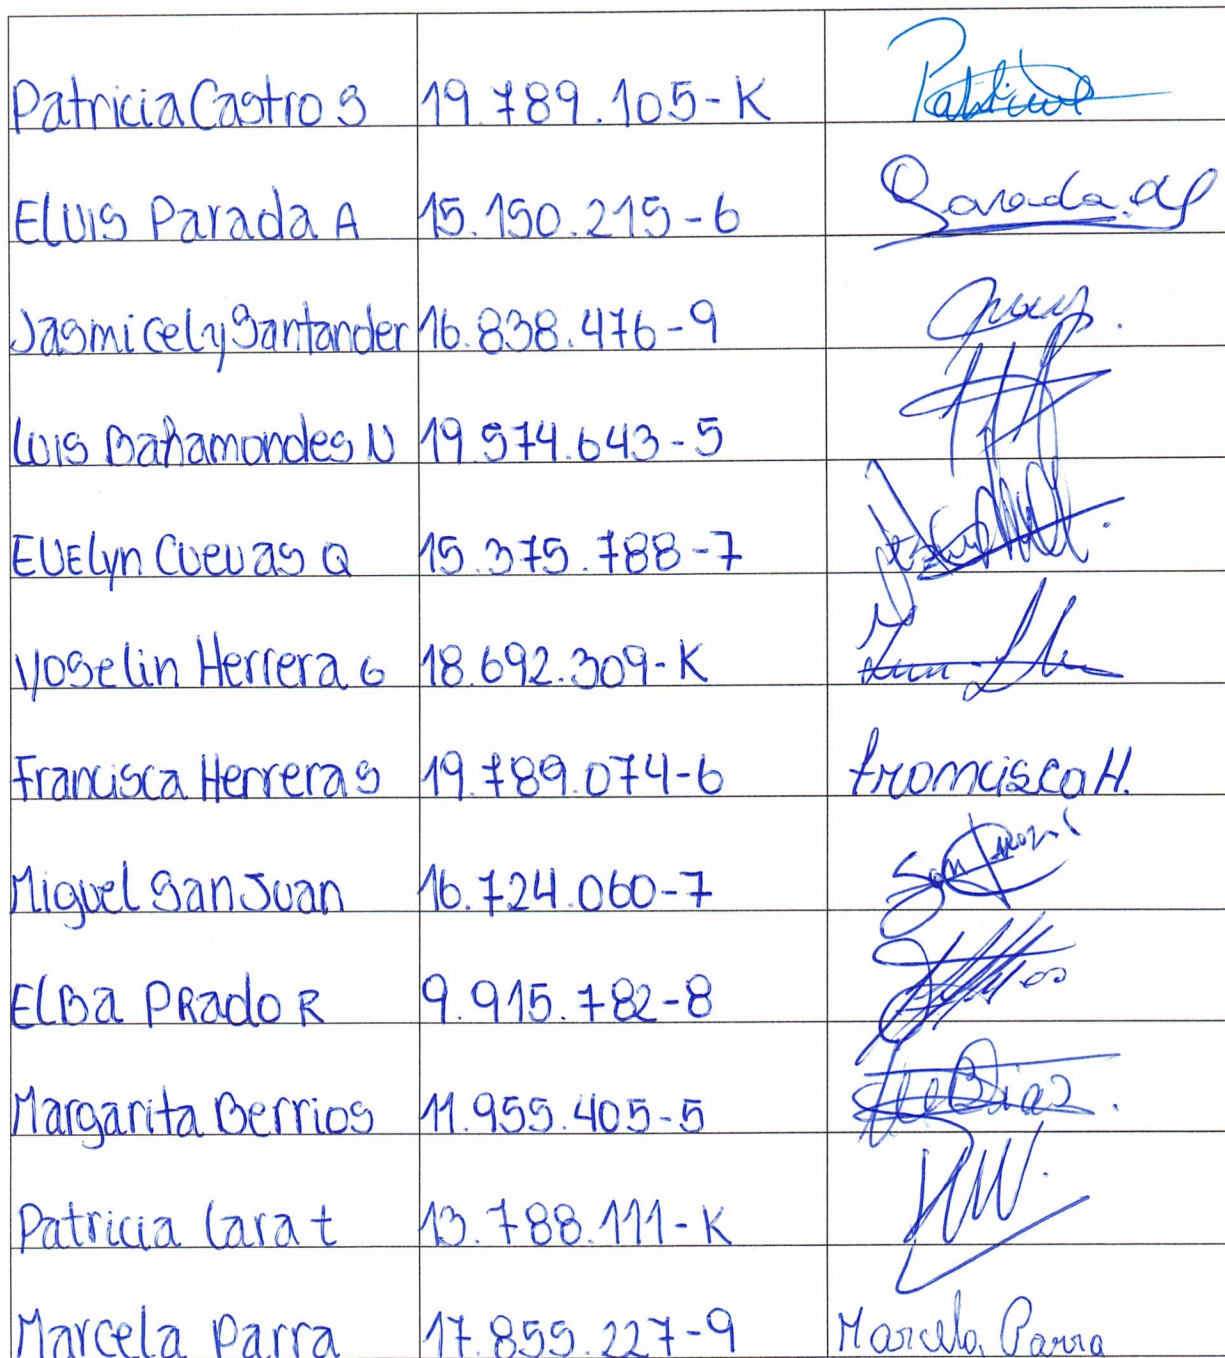 Patricia Castro S 19.789.105-K
Elvis Parada A 15.150.215-6 Parada
Jasmicely Santander 16.838.476-9
Luis Bahamondes N 19.574.643-5
Evelyn Cuevas Q 15.375.788-7
Yoselin Herrera G 18.692.309-K
Francisca Herrera S 19.789.074-6 Francisca H.
Miguel San Juan 16.724.060-7
Elba Prado R 9.915.782-8
Margarita Berrios 11.955.405-5
Patricia Lara t 13.788.111-K
Marcela Parra 17.855.227-9 Marcela Parra